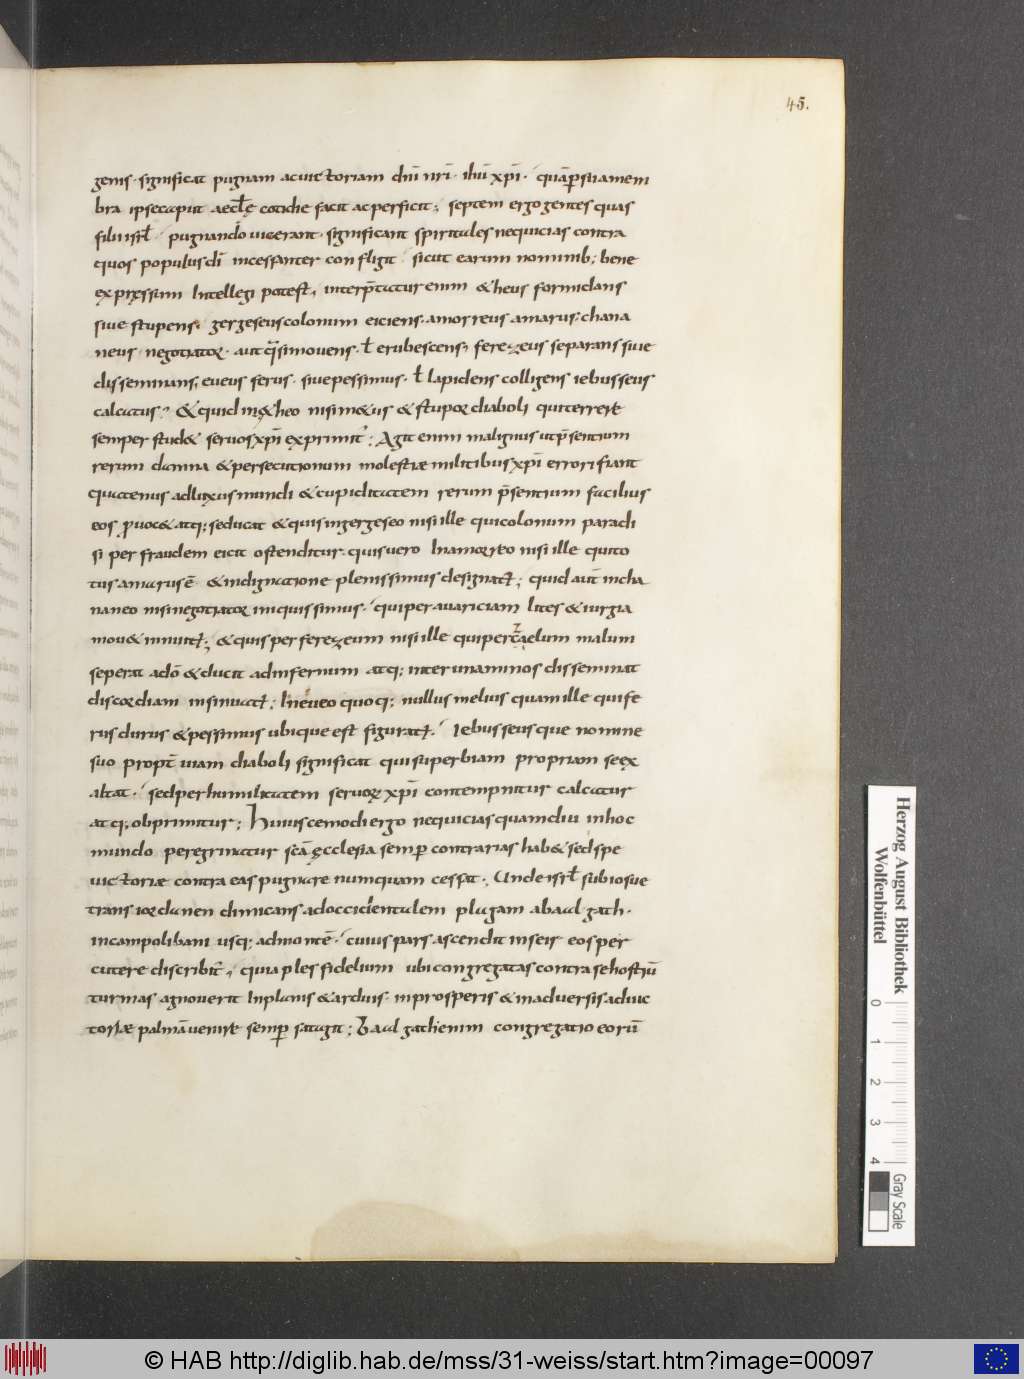 45.
genis · significat pugnam ac uictoriam dn̄i nr̄i · ihū xp̄i · quā p̄ sua mem
bra ipse caput aeccłę cotidie facit ac perficit ; septem ergo gentes quas
filii isrł pugnando uicerant · significant spiritales nequicias contra
quos populus dī incessanter confligit sicut earum nominib; bene
expressum Intellegi potest , interp̄tatur enim & heus formidans
siue stupens , gergeseus colonum eiciens · amorreus amarus · chana
neus negotiator · aut q̄si mouens · ł erubescens , ferezeus separans siue
disseminans , eueus ferus · siue pessimus · ł lapidens colligens iebusseus
calcatus , & quid in & heo nisi m&us & stupor diaboli qui terrere
semper stud& seruos xp̄i exprimit᷑ ; Agit enim malignus ut p̄sentium
rerum damna & persecutionum molestiæ militibus xp̄i errori fiant
quatenus ad luxus mundi & cupiditatem rerum p̄sentium facilius
eos p̱uoc& atq; seducat & quis in gergeseo nisi ille qui colonum paradi
si per fraudem eicit ostenditur · quis uero In amorreo nisi ille qui to
tus amarus ē & indignatione plenissimus designat᷑ ; quid aūt in cha
naneo nisi negotiator iniquissimus · qui per auariciam lites & iurgia
mou& innuit᷑ ; & quis per ferezeum nisi ille qui per czaelum malum
seperat a dō & ducit ad infernum atq; inter unanimos disseminat
discordiam insinuat᷑ ; In eueo quoq; nullus melius quam ille qui fe
rus durus & pessimus ubique est figurat᷑ · Iebusseus que nomine
suo propt̄ uiam diaboli significat qui superbiam propriam se ex
altat · sed per humilitatem seruoꝝ xp̄i contempnitur calcatur
atq; obprimitur ; Huiuscemodi ergo nequicias quamdiu in hoc
mundo peregrinatur scā ęcclesia semp̱ contrarias hab& sed spe
uictoriæ contra eas pugnare numquam cessat · Unde isrł sub iosue
trans iordanen dimicans ad occidentalem plagam a baal gath ·
in campo libani usq; ad montē · cuius pars ascendit in seir eos per
cutere discribit᷑ , quia ples fidelium ubi congregatas contra se hostiū
turmas agnouerit In planis & arduis · in prosperis & in aduersis ad uic
toriæ palmā uenire semp̱ satagit ; Baal gath enim congregatio eorū
Herzog August Bibliothek
Wolfenbüttel
0 1 2 3 4
Gray Scale
© HAB http://diglib.hab.de/mss/31-weiss/start.htm?image=00097